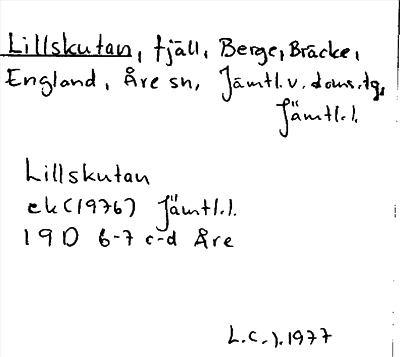 Lillskutan, fjäll, Berge, Bräcke,
England, Åre sn, Jämtl. v. doms.tg,
Jämtl. l.
Lillskutan
ek (1976) Jämtl. l.
19D 6-7 c-d Åre
L.C. J. 1977